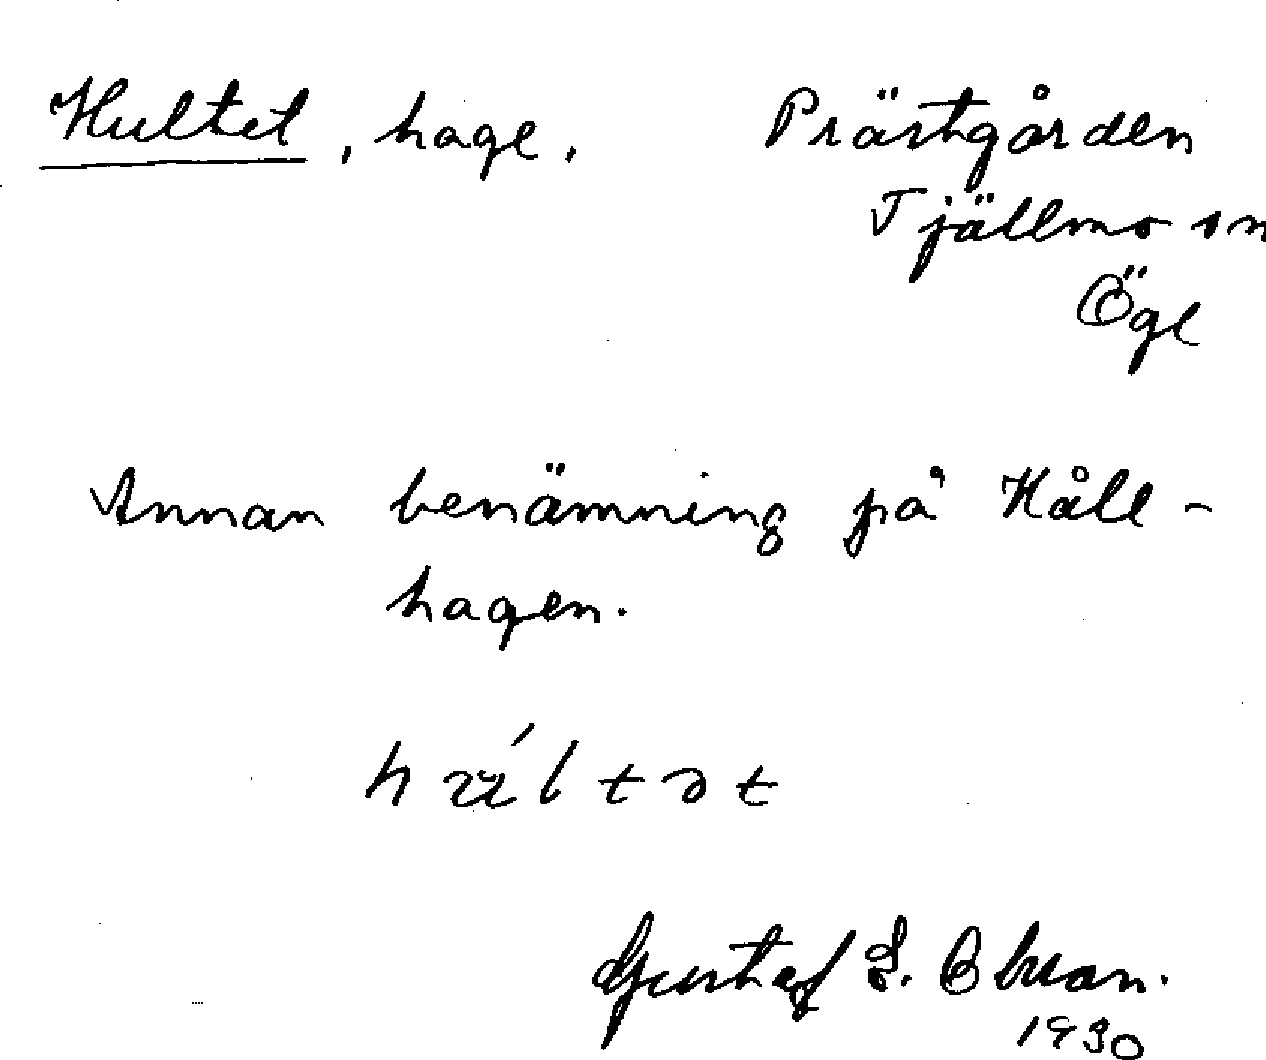 Hultet, hage.
Prästgården
Tjällmo sn
Ögl
Annan benämning på Håll-
hagen.
Gustaf E.
1930